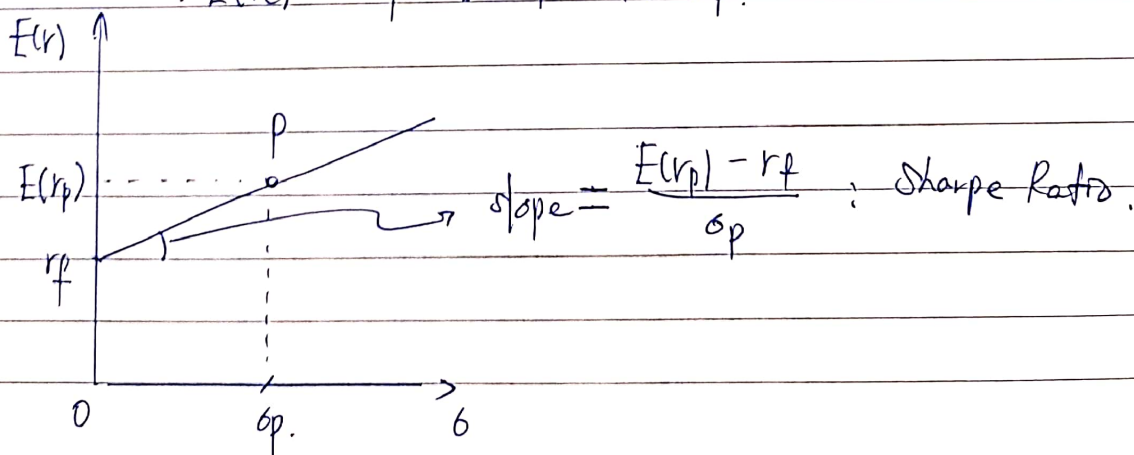 E(r)
P
E(rp)
slope = E(rp) - rf / σp : Sharpe Ratio.
rf
0 σp. σ